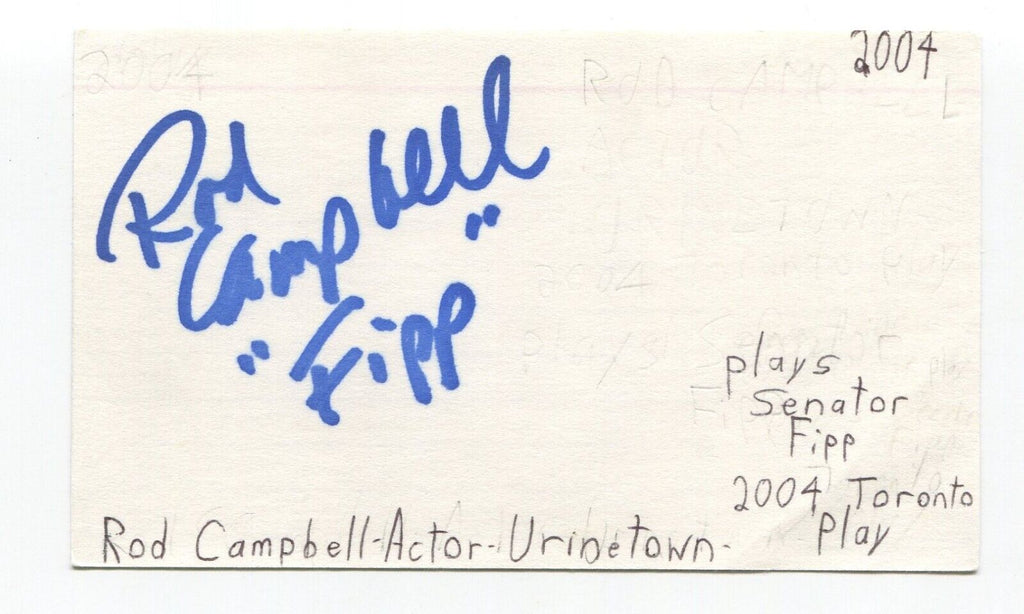 2004
Rod
Campbell
"Fipp"
plays
Senator
Fipp
2004 Toronto
Play
Rod Campbell-Actor-Urinetown-